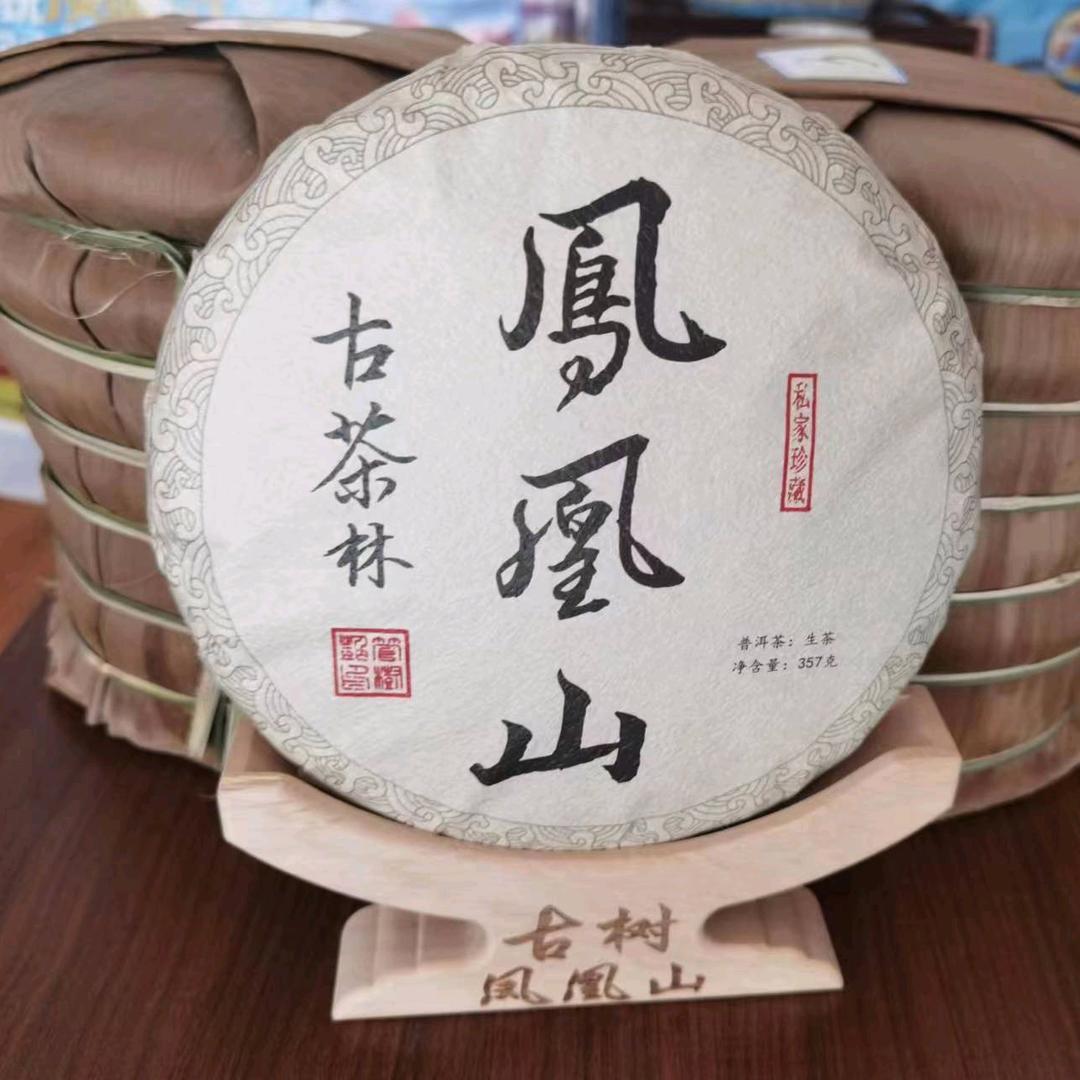 鳳凰山
古茶林
私家珍藏
普洱茶：生茶
净含量：357克
古树
凤凰山